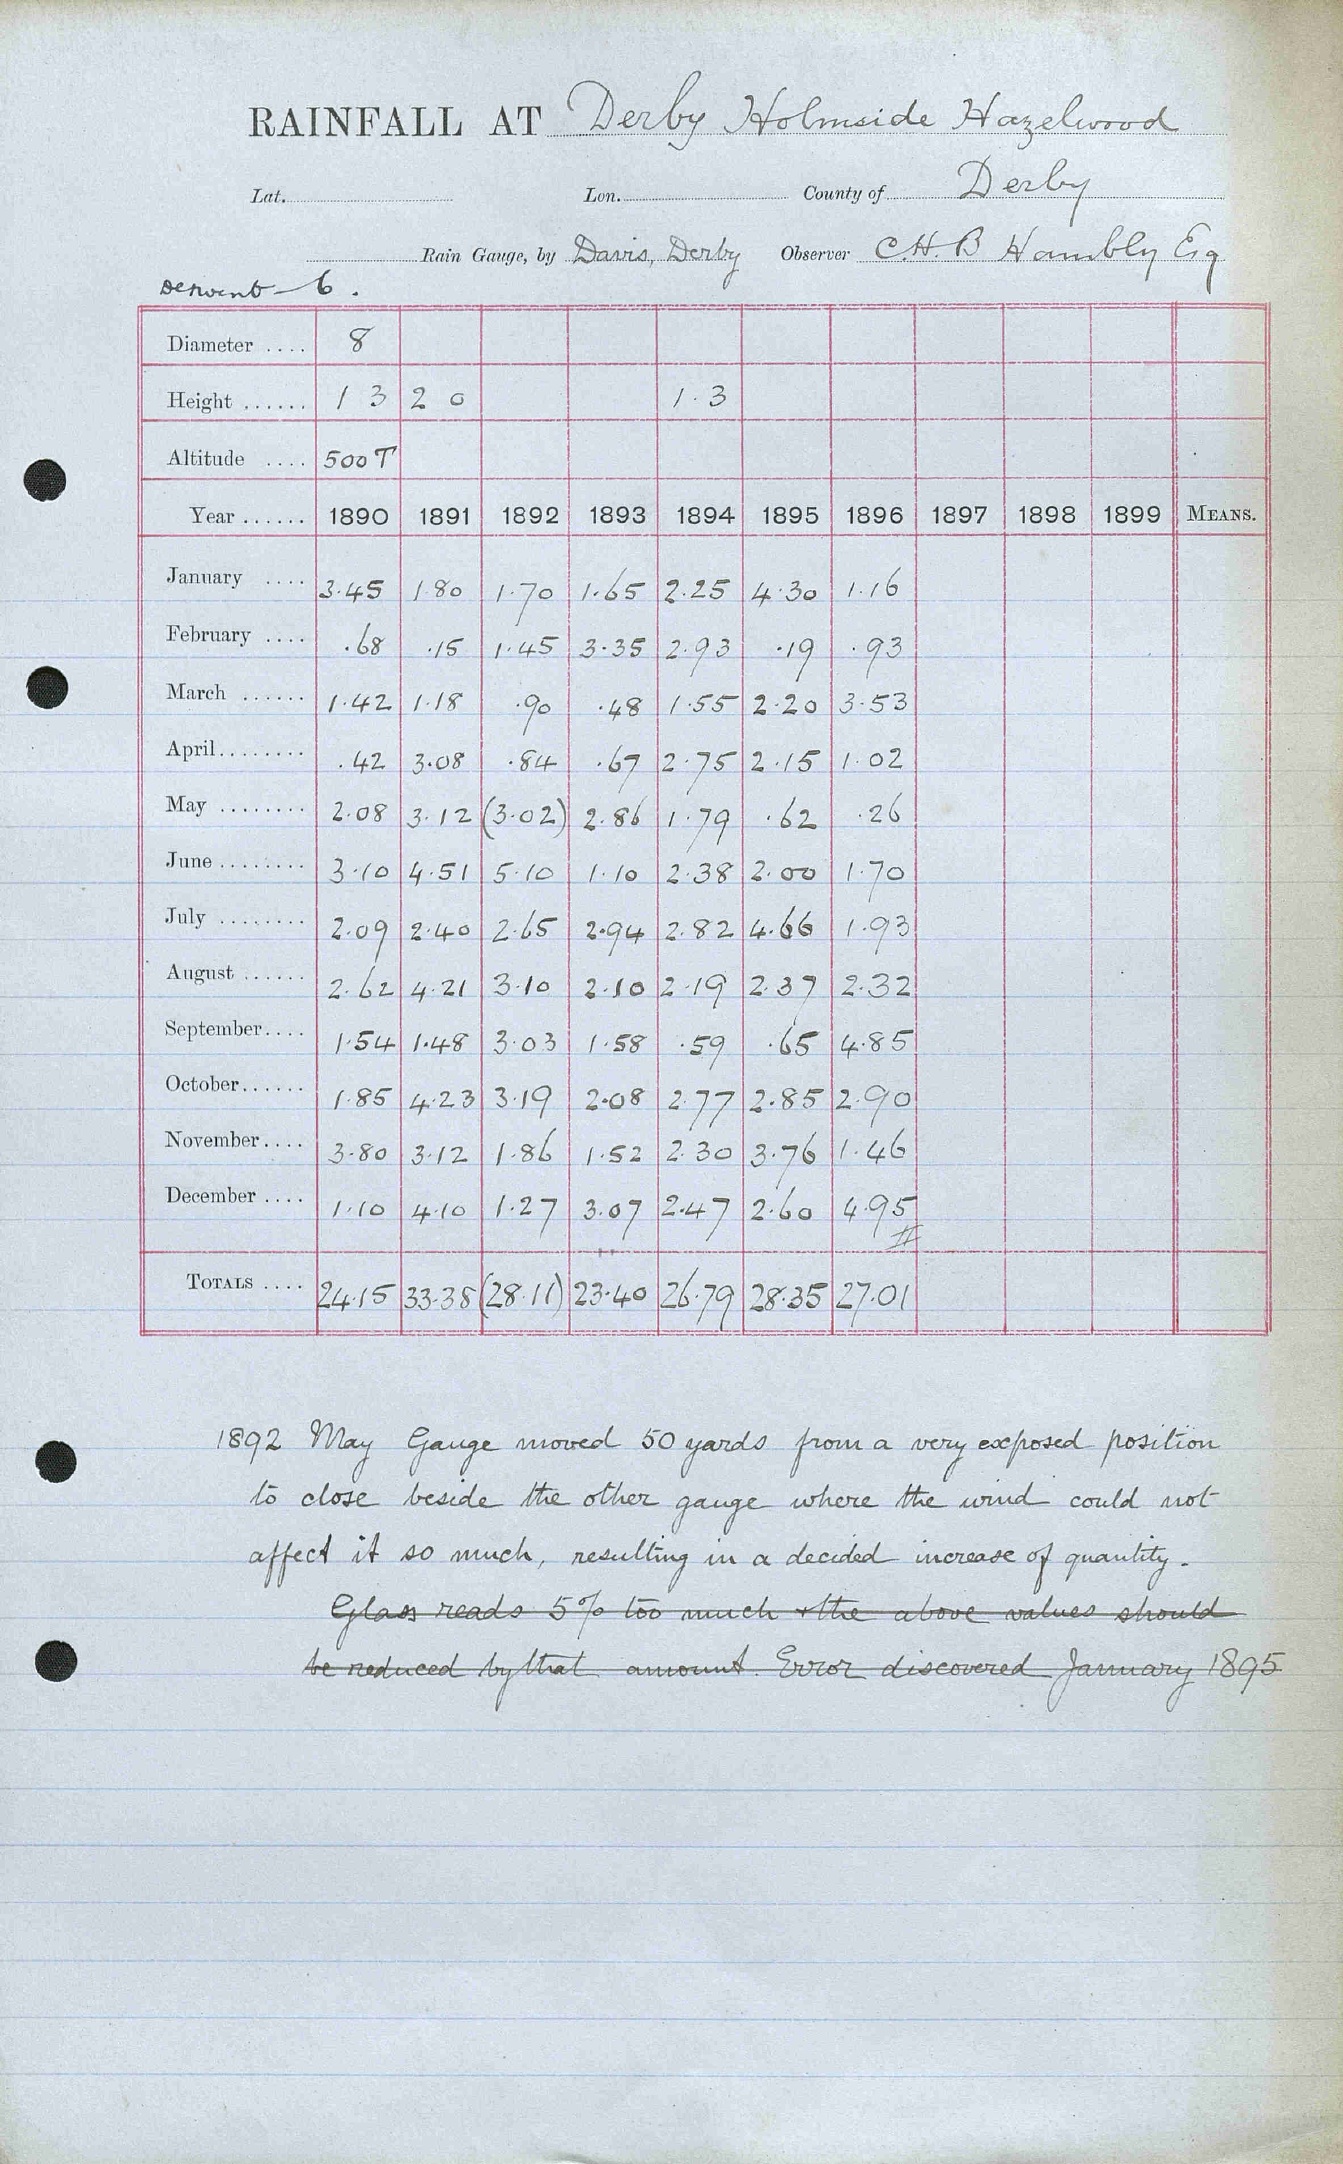 RAINFALL AT Derby Holmside Hazelwood
Lat. Lon. County of Derby
Rain Gauge, by Davis, Derby Observer C.H.B Hambly Esq
Derwent – 6.
Diameter .... 8
Height ...... 1 3 2 0 1.3
Altitude .... 500T
Year ...... 1890 1891 1892 1893 1894 1895 1896 1897 1898 1899 MEANS.
January .... 3.45 1.80 1.70 1.65 2.25 4.30 1.16
February .... .68 .15 1.45 3.35 2.93 .19 .93
March ...... 1.42 1.18 .90 .48 1.55 2.20 3.53
April........ .42 3.08 .84 .67 2.75 2.15 1.02
May ........ 2.08 3.12 (3.02) 2.86 1.79 .62 .26
June ........ 3.10 4.51 5.10 1.10 2.38 2.00 1.70
July ........ 2.09 2.40 2.65 2.94 2.82 4.66 1.93
August ...... 2.62 4.21 3.10 2.10 2.19 2.37 2.32
September.... 1.54 1.48 3.03 1.58 .59 .65 4.85
October...... 1.85 4.23 3.19 2.08 2.77 2.85 2.90
November.... 3.80 3.12 1.86 1.52 2.30 3.76 1.46
December .... 1.10 4.10 1.27 3.07 2.47 2.60 4.95
TOTALS .... 24.15 33.38 (28.11) 23.40 26.79 28.35 27.01
1892 May Gauge moved 50 yards from a very exposed position
to close beside the other gauge where the wind could not
affect it so much, resulting in a decided increase of quantity.
Glass reads 5% too much & the above values should
be reduced by that amount. Error discovered January 1895